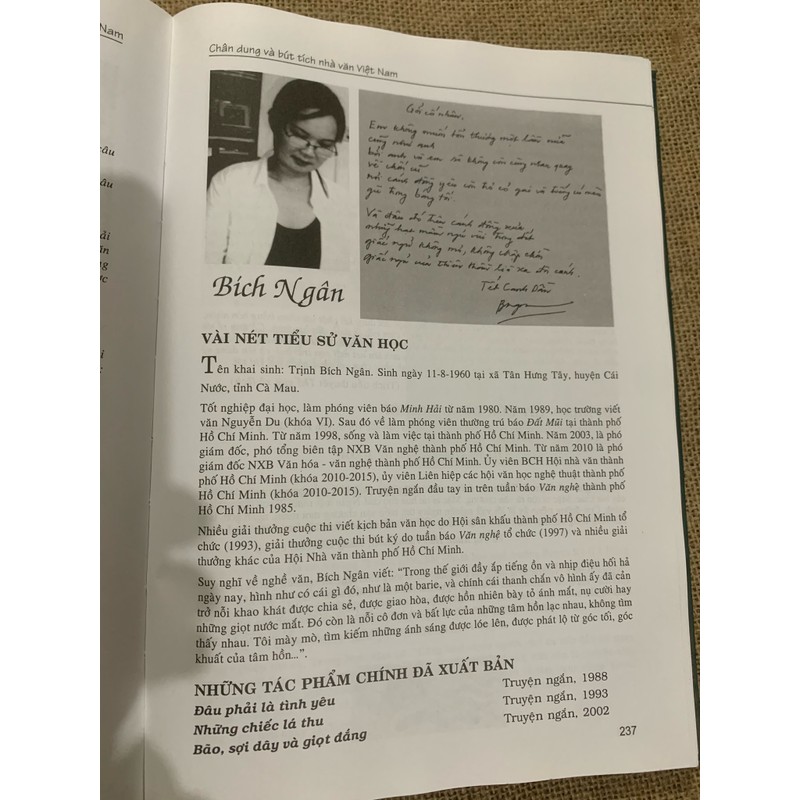 Nam
Chân dung và bút tích nhà văn Việt Nam
Em không muốn
Tết Canh Dần
Bích Ngân
VÀI NÉT TIỂU SỬ VĂN HỌC
Tên khai sinh: Trịnh Bích Ngân. Sinh ngày 11-8-1960 tại xã Tân Hưng Tây, huyện Cái
Nước, tỉnh Cà Mau.
Tốt nghiệp đại học, làm phóng viên báo Minh Hải từ năm 1980. Năm 1989, học trường viết
văn Nguyễn Du (khóa VI). Sau đó về làm phóng viên thường trú báo Đất Mũi tại thành phố
Hồ Chí Minh. Từ năm 1998, sống và làm việc tại thành phố Hồ Chí Minh. Năm 2003, là phó
giám đốc, phó tổng biên tập NXB Văn nghệ thành phố Hồ Chí Minh. Từ năm 2010 là phó
giám đốc NXB Văn hóa - văn nghệ thành phố Hồ Chí Minh. Ủy viên BCH Hội nhà văn thành
phố Hồ Chí Minh (khóa 2010-2015), ủy viên Liên hiệp các hội văn học nghệ thuật thành phố
Hồ Chí Minh (khóa 2010-2015). Truyện ngắn đầu tay in trên tuần báo Văn nghệ thành phố
Hồ Chí Minh 1985.
Nhiều giải thưởng cuộc thi viết kịch bản văn học do Hội sân khấu thành phố Hồ Chí Minh tổ
chức (1993), giải thưởng cuộc thi bút ký do tuần báo Văn nghệ tổ chức (1997) và nhiều giải
thưởng khác của Hội Nhà văn thành phố Hồ Chí Minh.
Suy nghĩ về nghề văn, Bích Ngân viết: “Trong thế giới đầy ắp tiếng ồn và nhịp điệu hối hả
ngày nay, hình như có cái gì đó, như là một barie, và chính cái thanh chắn vô hình ấy đã cản
trở nỗi khao khát được chia sẻ, được giao hòa, được hồn nhiên bày tỏ ánh mắt, nụ cười hay
những giọt nước mắt. Đó còn là nỗi cô đơn và bất lực của những tâm hồn lạc nhau, không tìm
thấy nhau. Tôi mày mò, tìm kiếm những ánh sáng được lóe lên, được phát lộ từ góc tối, góc
khuất của tâm hồn...”.
NHỮNG TÁC PHẨM CHÍNH ĐÃ XUẤT BẢN
Đâu phải là tình yêu Truyện ngắn, 1988
Những chiếc lá thu Truyện ngắn, 1993
Bão, sợi dây và giọt đắng Truyện ngắn, 2002
237